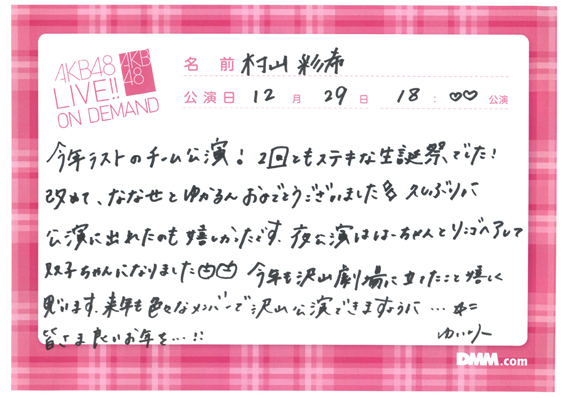 AKB48
LIVE!!
ON DEMAND
AKB
48
名前 村山彩希
公演日 12月29日 18:♡♡公演
今年ラストのチーム公演! 2回ともステキな生誕祭、でした!
改めて、ななせとゆかるんおめでとうございました 久しぶりに
公演に出れたのも嬉しかったです、夜公演ははーちゃんとリンゴヘアして
双子ちゃんになりました 今年も沢山劇場に立てたこと嬉しく
思います、来年も色々なメンバーで沢山公演できますように…
皆さま良いお年を…!! ゆいりー
DMM.com